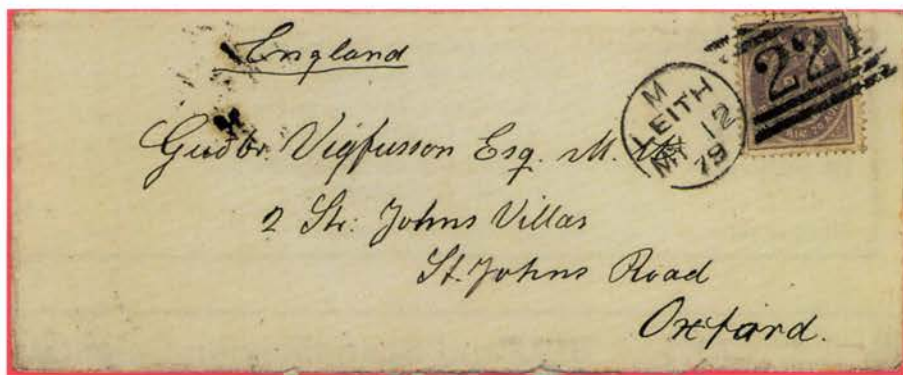 England
221
M
LEITH
MY 12
79
Gudbr. Vigfusson Esq. M.
2 St. Johns Villas
St. Johns Road
Oxford.